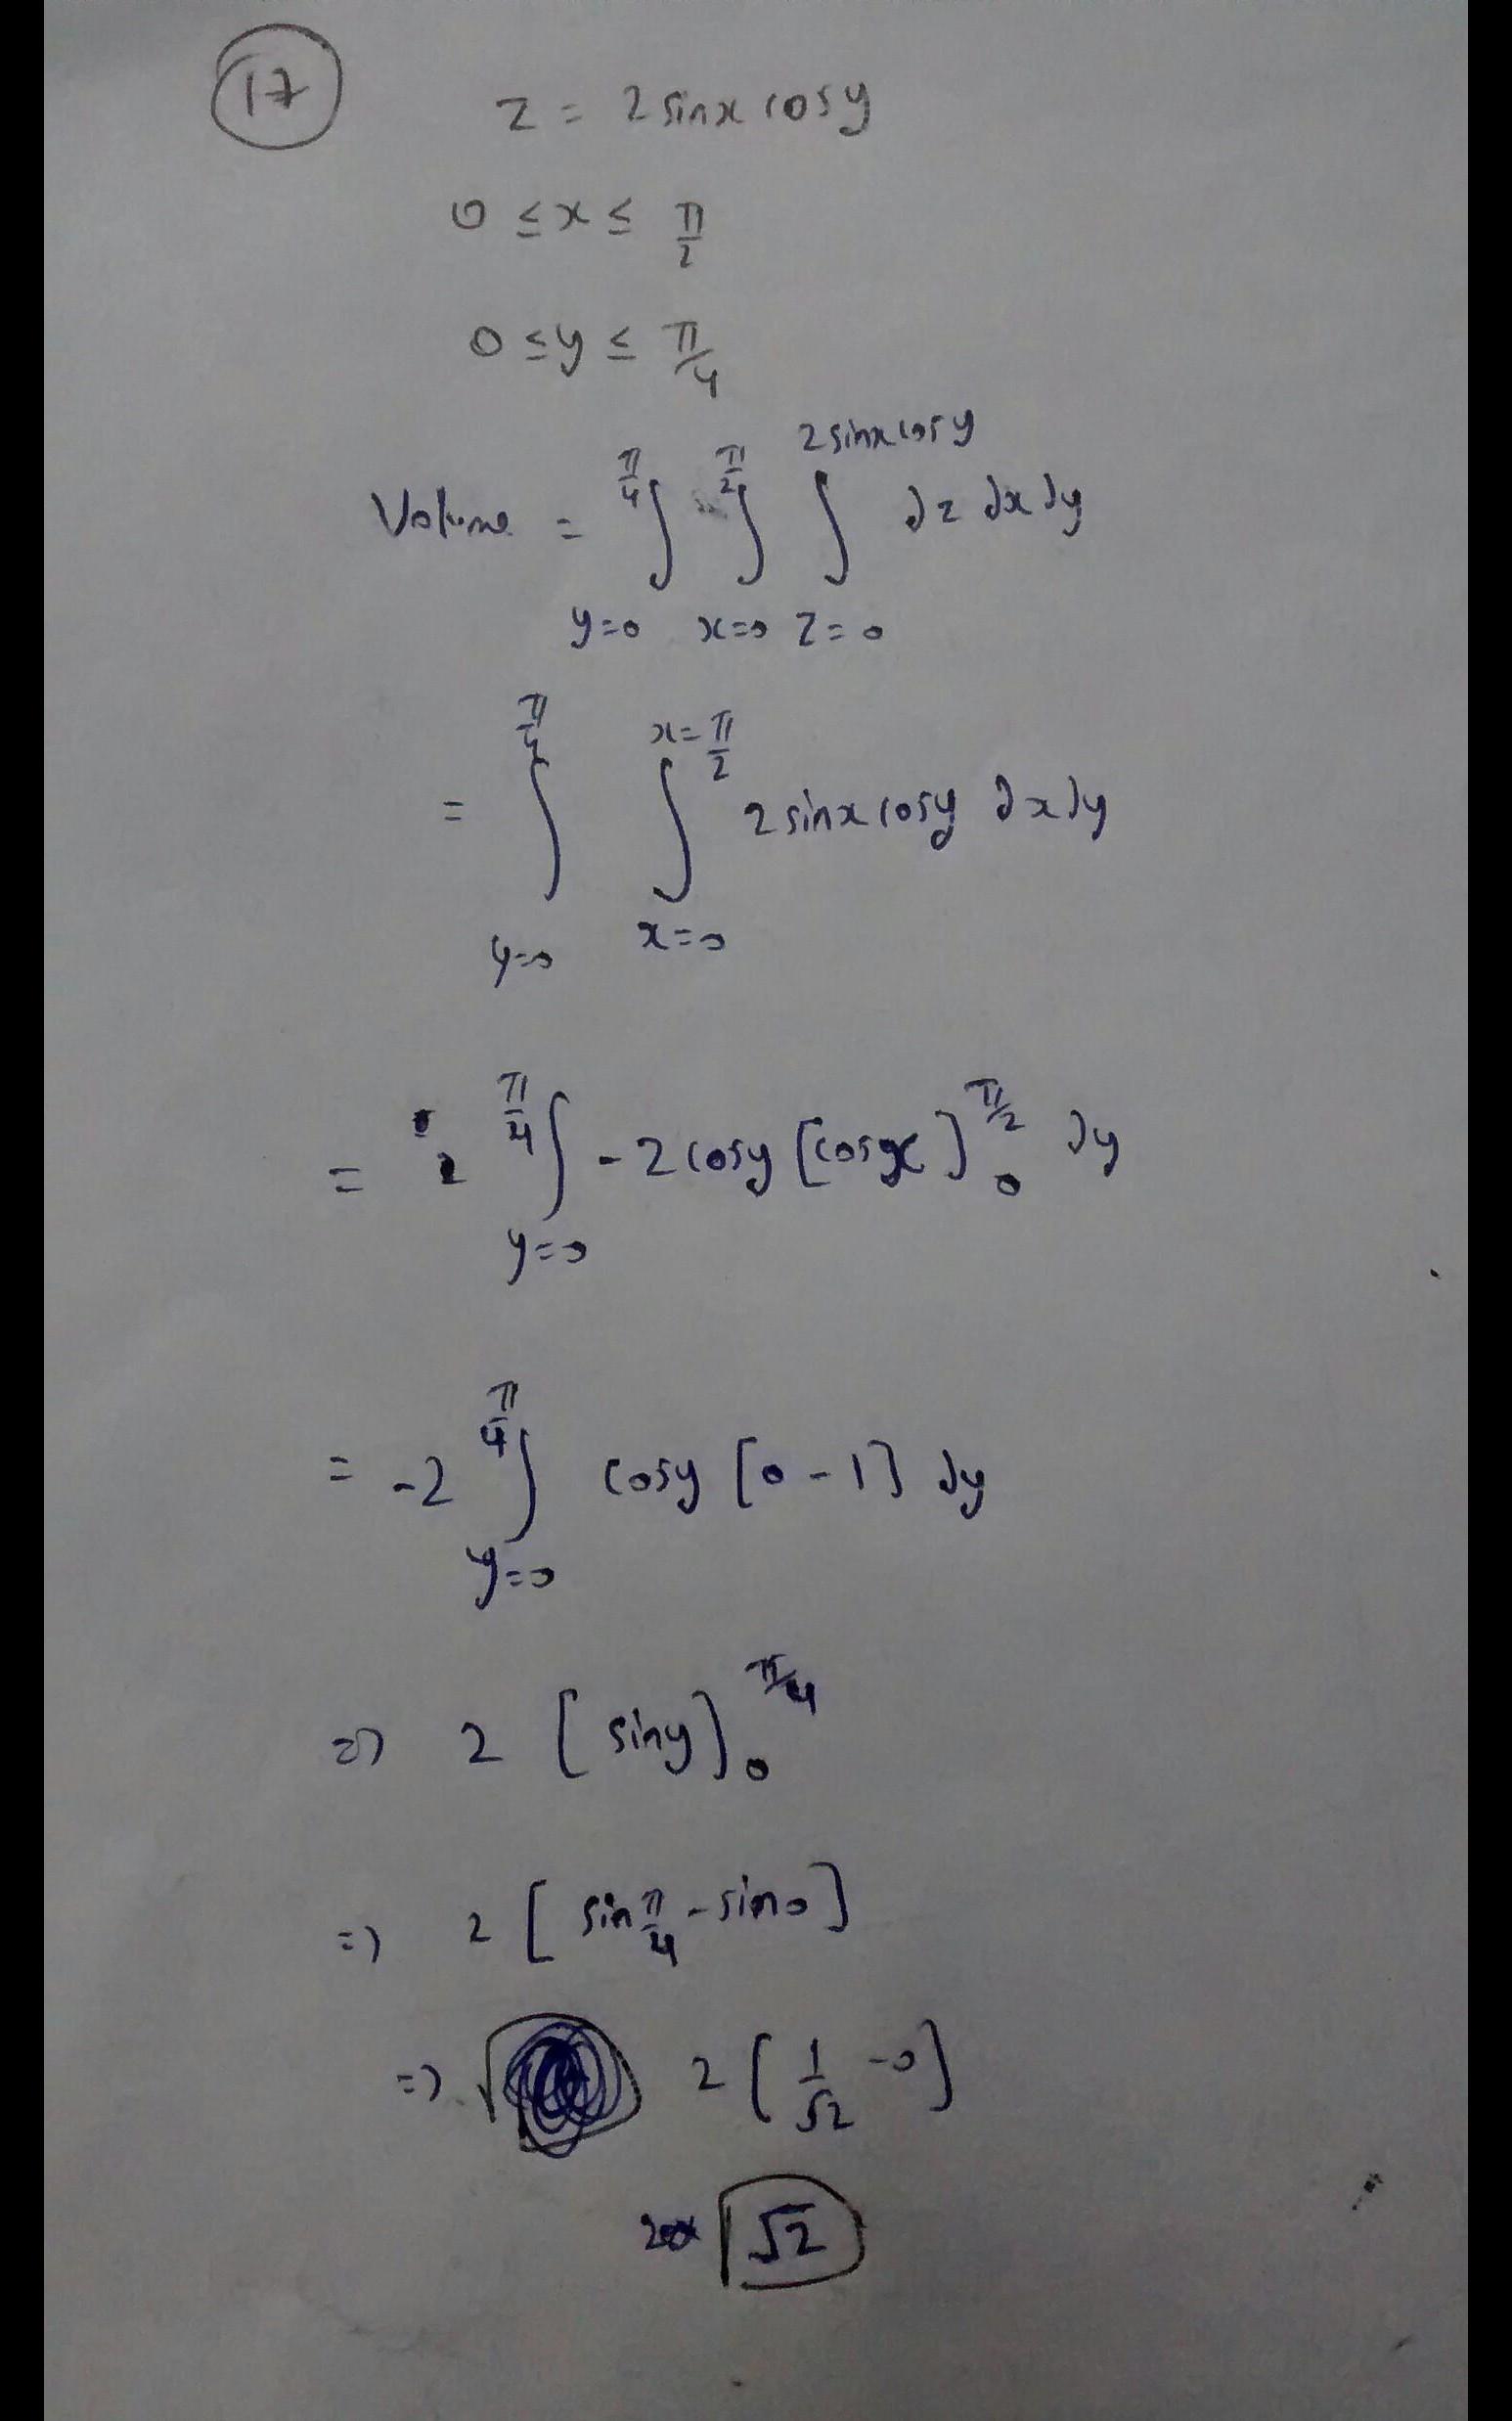 17
z = 2 sinx cosy
0 ≤ x ≤ π/2
0 ≤ y ≤ π/4
Volume = ∫_{y=0}^{π/4} ∫_{x=0}^{π/2} ∫_{z=0}^{2sinxcosy} dz dx dy
= ∫_{y=0}^{π/4} ∫_{x=0}^{x=π/2} 2 sinx cosy dx dy
= 2 ∫_{y=0}^{π/4} -2 cosy [cosx]_0^{π/2} dy
= -2 ∫_{y=0}^{π/4} cosy [0 - 1] dy
=> 2 [siny]_0^{π/4}
=> 2 [sin π/4 - sin0]
=> 2 [1/√2 - 0]
√2